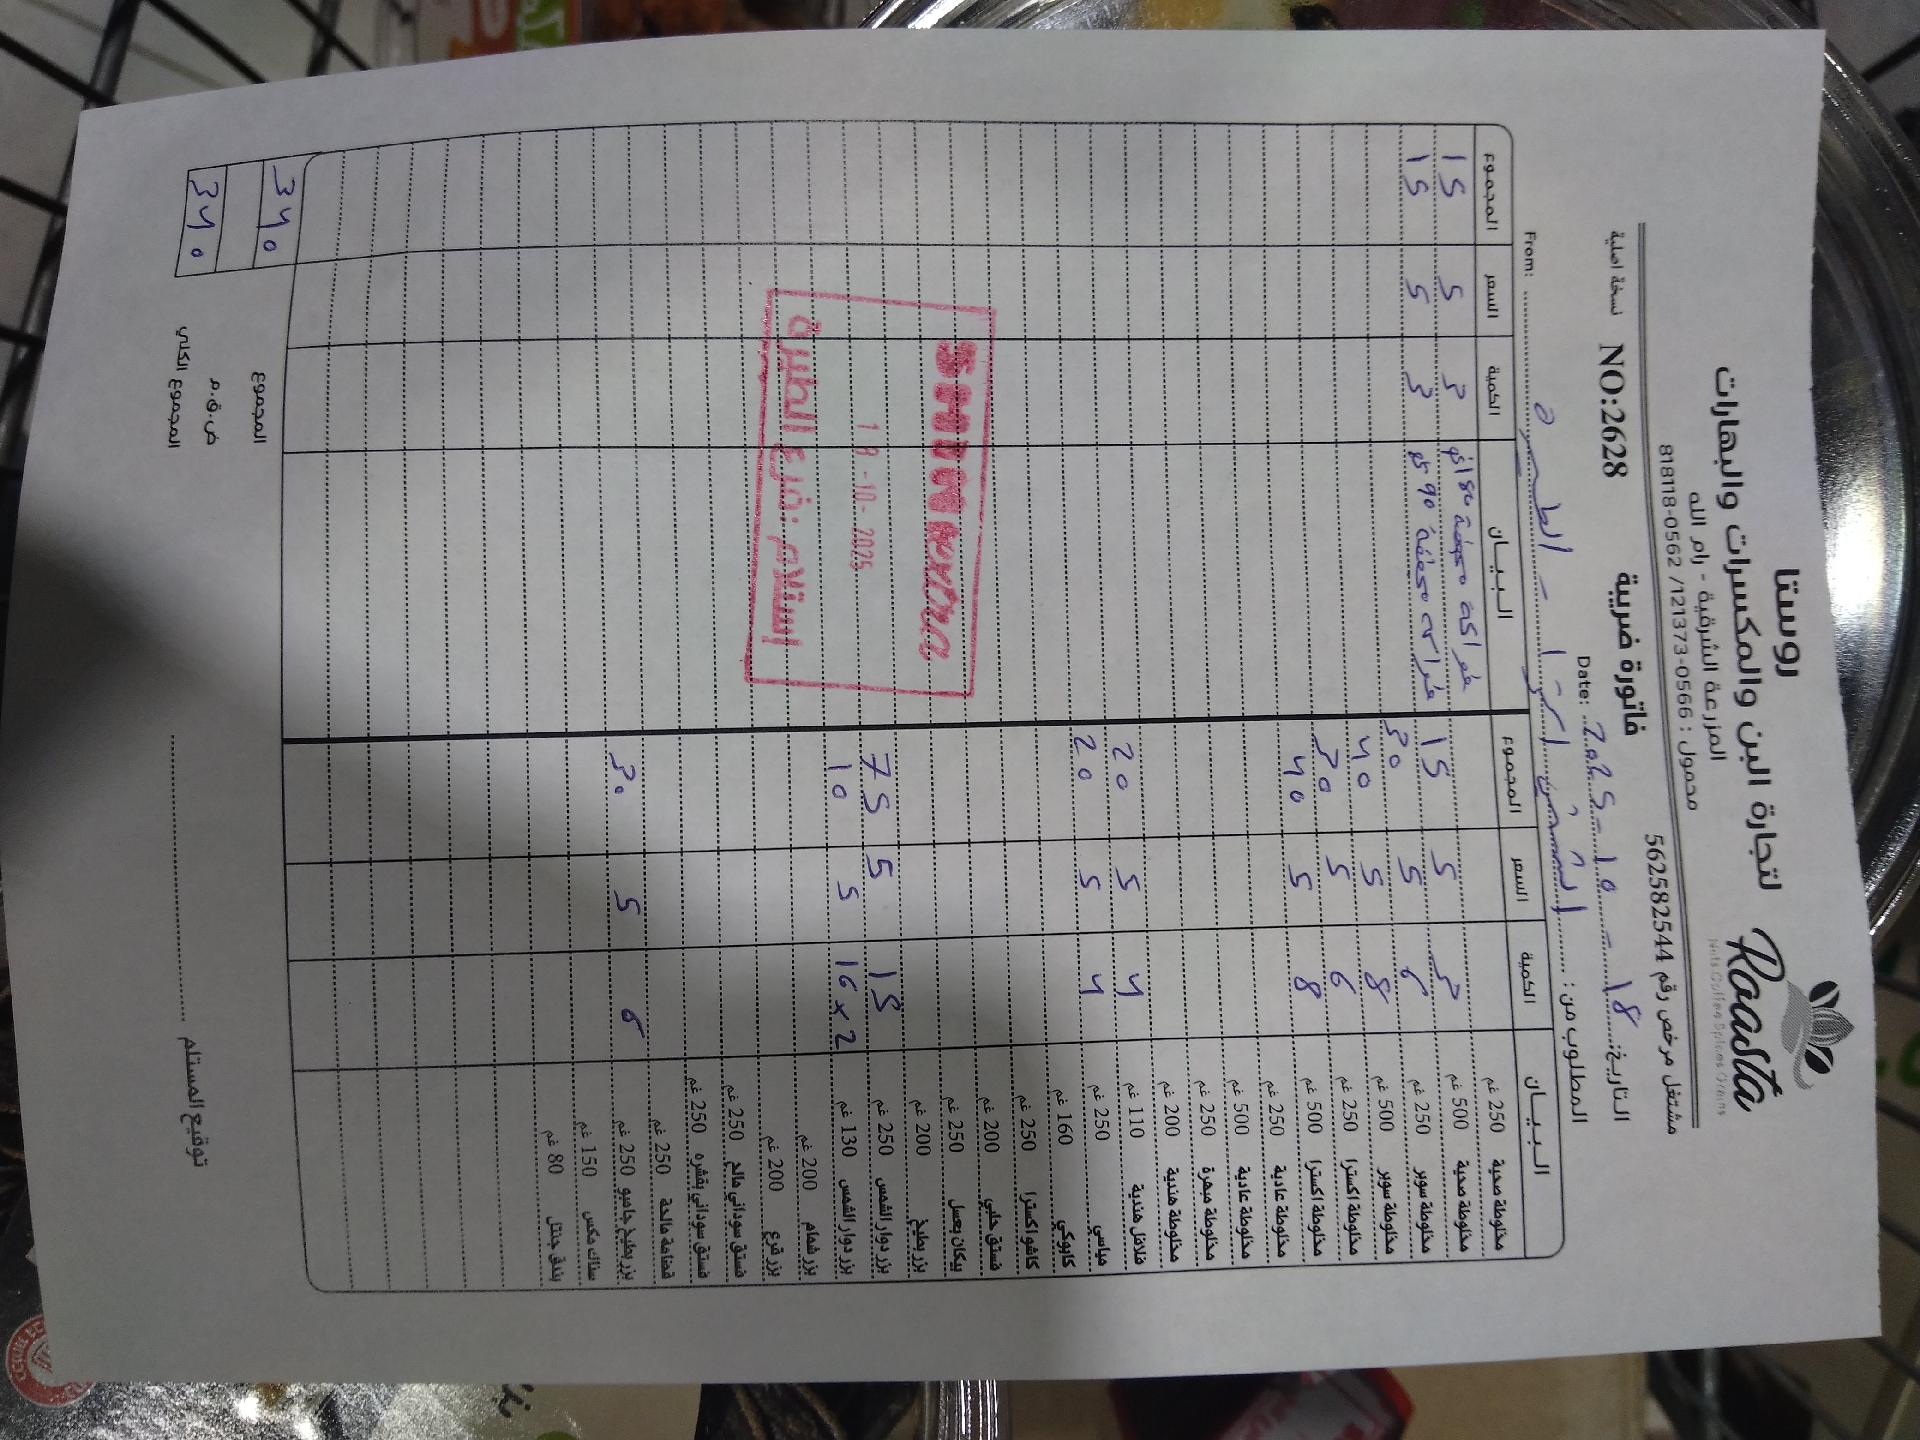 روستا
لتجارة البن والمكسرات والبهارات
المزرعة الشرقية - رام الله
محمول : 0566-121373/ 0562-818118
Roasta
مشتغل مرخص رقم 562582544
فاتورة ضريبية
NO:2628
نسخة اصلية
التاريخ: 18 - 10 - 2025 :Date
المطلوب من :
From:
البيان الكمية السعر المجموع البيان الكمية السعر المجموع
مخلوطة صحية 250 غم
مخلوطة صحية 500 غم 3 5 15
مخلوطة سوبر 250 غم 6 5 30
مخلوطة سوبر 500 غم 8 5 40
مخلوطة اكسترا 250 غم 6 5 30
مخلوطة اكسترا 500 غم 8 5 40
مخلوطة عادية 250 غم
مخلوطة عادية 500 غم
مخلوطة مبهرة 250 غم
مخلوطة هندية 200 غم
فلافل هندية 110 غم 4 5 20
مياسي 250 غم 4 5 20
كابوكي 160 غم
كاشو اكسترا 250 غم
فستق حلبي 200 غم
بيكان بعسل 250 غم
بزر بطيخ 200 غم
بزر دوار الشمس 250 غم 15 5 75
بزر دوار الشمس 130 غم 16 x 2 5 10
بزر شمام 200 غم
بزر قرع 200 غم
فستق سوداني مالح 250 غم
فستق سوداني بقشره 250 غم
قضامة مالحة 250 غم
بزر بطيخ جامبو 250 غم 6 5 30
سناك مكس 150 غم
بندق جنتل 80 غم
3 5 15
3 5 15
18-10-2025
إستلام : فرع الطيرة
المجموع 340
ض.ق.م
المجموع الكلي 340
توقيع المستلم